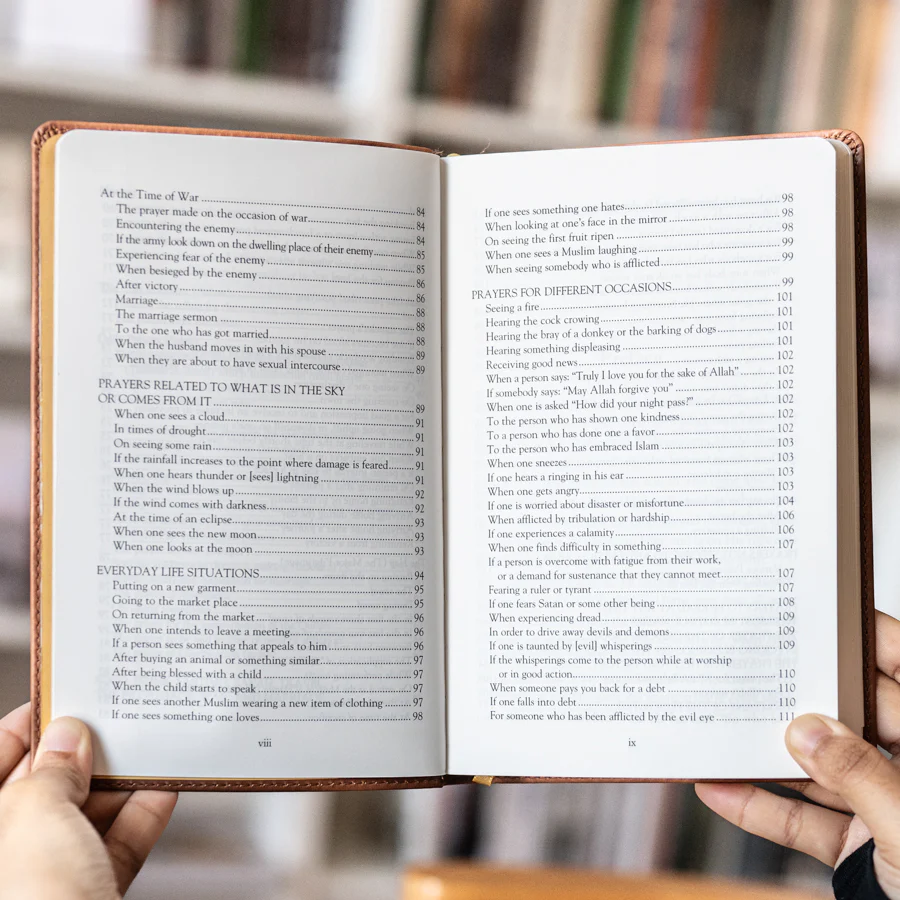 At the Time of War ........ 84
The prayer made on the occasion of war........ 84
Encountering the enemy........ 84
If the army look down on the dwelling place of their enemy........85
Experiencing fear of the enemy ........ 85
When besieged by the enemy ........ 86
After victory ........ 86
Marriage........ 88
The marriage sermon ........ 88
To the one who has got married........ 88
When the husband moves in with his spouse ........ 89
When they are about to have sexual intercourse........ 89
PRAYERS RELATED TO WHAT IS IN THE SKY
OR COMES FROM IT ........ 89
When one sees a cloud........ 91
In times of drought........ 91
On seeing some rain........ 91
If the rainfall increases to the point where damage is feared........ 91
When one hears thunder or [sees] lightning ........ 91
When the wind blows up ........ 92
If the wind comes with darkness........ 92
At the time of an eclipse........ 93
When one sees the new moon........ 93
When one looks at the moon ........ 93
EVERYDAY LIFE SITUATIONS........ 94
Putting on a new garment........ 95
Going to the market place ........ 95
On returning from the market ........ 96
When one intends to leave a meeting........ 96
If a person sees something that appeals to him ........ 96
After buying an animal or something similar........ 97
After being blessed with a child ........ 97
When the child starts to speak ........ 97
If one sees another Muslim wearing a new item of clothing ........ 97
If one sees something one loves........ 98
viii
If one sees something one hates........ 98
When looking at one's face in the mirror ........ 98
On seeing the first fruit ripen ........ 98
When one sees a Muslim laughing ........ 99
When seeing somebody who is afflicted........ 99
PRAYERS FOR DIFFERENT OCCASIONS........ 99
Seeing a fire........ 101
Hearing the cock crowing ........ 101
Hearing the bray of a donkey or the barking of dogs........ 101
Hearing something displeasing ........ 101
Receiving good news........ 102
When a person says: "Truly I love you for the sake of Allah" ........ 102
If somebody says: "May Allah forgive you" ........ 102
When one is asked "How did your night pass?" ........ 102
To the person who has shown one kindness........ 102
To a person who has done one a favor........ 102
To the person who has embraced Islam ........ 103
When one sneezes ........ 103
If one hears a ringing in his ear ........ 103
When one gets angry........ 103
If one is worried about disaster or misfortune........ 104
When afflicted by tribulation or hardship........ 106
If one experiences a calamity ........ 106
When one finds difficulty in something........ 107
If a person is overcome with fatigue from their work,
or a demand for sustenance that they cannot meet........ 107
Fearing a ruler or tyrant ........ 107
If one fears Satan or some other being ........ 108
When experiencing dread........ 109
In order to drive away devils and demons........ 109
If one is taunted by [evil] whisperings ........ 109
If the whisperings come to the person while at worship
or in good action........ 110
When someone pays you back for a debt ........ 110
If one falls into debt ........ 110
For someone who has been afflicted by the evil eye ........ 111
ix